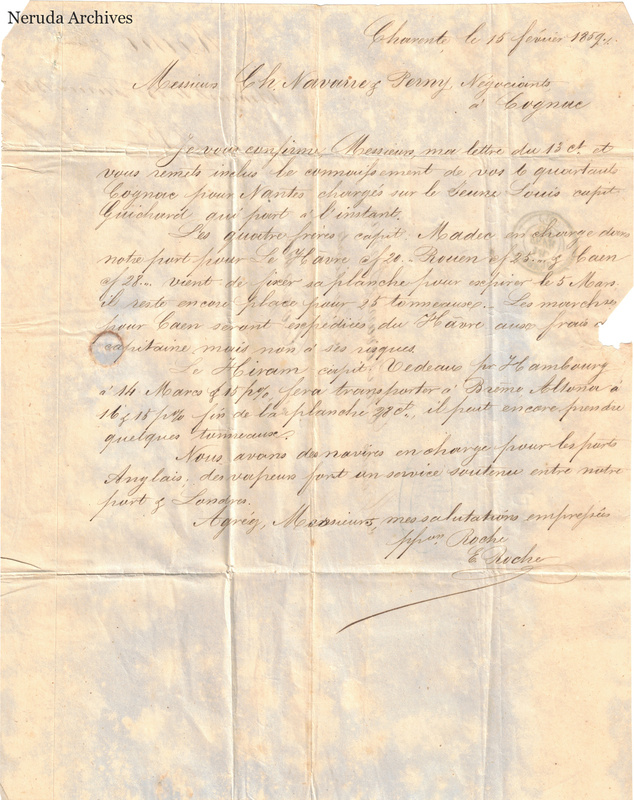 Neruda Archives
Charente, le 15 février 1859.
Messieurs Ch. Navarre & Perny, Négociants
à Cognac
Je vous confirme, Messieurs, ma lettre du 13 ct. et
vous remets inclus le connaissement de vos 6 quartauts
Cognac pour Nantes chargés sur le Jeune Louis capit.
Guichard qui part à l'instant.
Les quatre frères, capit. Madec en charge dans
notre port pour Le Havre à f 20.. Rouen à f 25.. & Caen
à f 28.. vient de fixer sa planche pour expirer le 5 Mars.
il reste encore place pour 25 tonneaux. Les marchses
pour Caen seront expédiées, du Hâvre aux frais
capitaine, mais non à ses risques.
Le Hiram capit. Vedeaux pr Hambourg
à 14 Marcs & 15 p% fera transporter à Brême Altona à
16 & 15 p% fin de la planche 28 ct. il peut encore prendre
quelques tonneaux.
Nous avons des navires en charge pour les ports
Anglais; des vapeurs font un service soutenu entre notre
port & Londres.
Agréez, Messieurs, mes salutations empressées
ppon Roche
E Roche